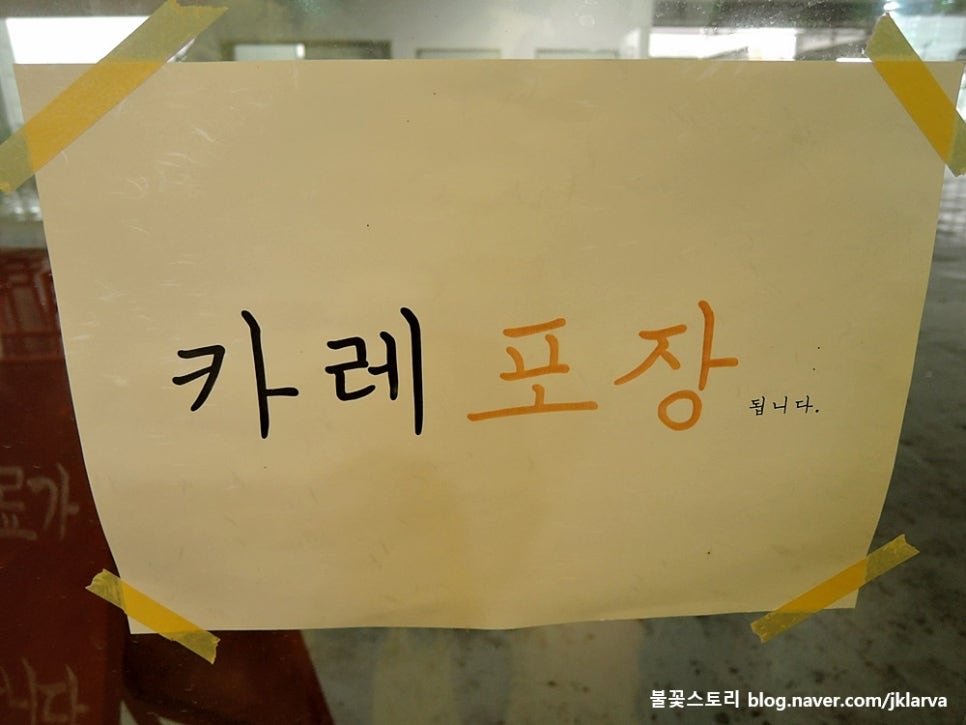 카레 포장 됩니다.
료가
니다
불꽃스토리 blog.naver.com/jklarva